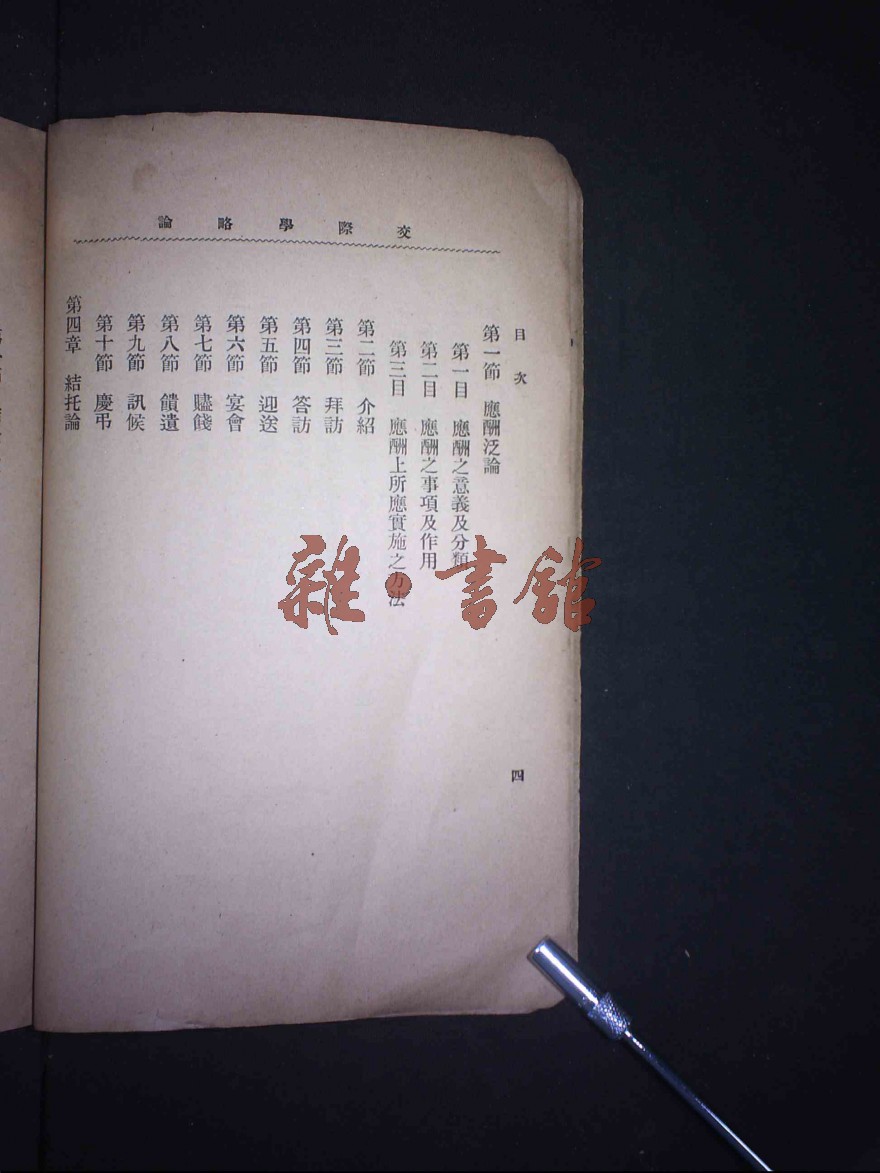 交際學略論
目次
第一節 應酬泛論
第一目 應酬之意義及分類
第二目 應酬之事項及作用
第三目 應酬上所應實施之方法
第二節 介紹
第三節 拜訪
第四節 答訪
第五節 迎送
第六節 宴會
第七節 贐餞
第八節 饋遺
第九節 訊候
第十節 慶弔
第四章 結托論
四
雜·書館